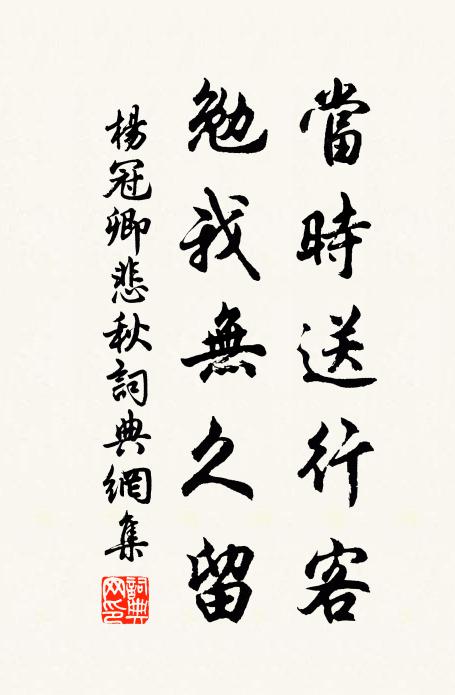 當時送行客
勉我無久留
楊冠卿悲秋詞典網集
詞典網印